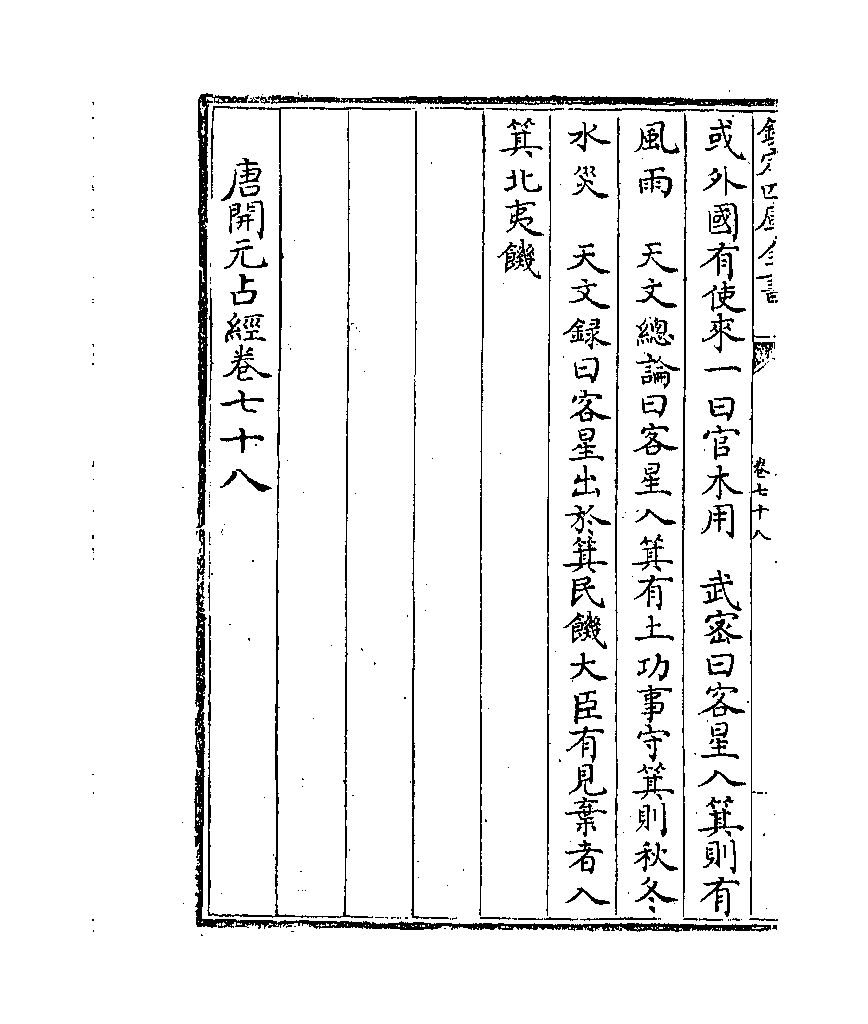 欽定四庫全書
卷七十八
或外國有使來一曰官木用　武宻曰客星入箕則有
風雨　天文總論曰客星入箕有土功事守箕則秋冬
水災　天文録曰客星出於箕民饑大臣有見棄者入
箕北夷饑
唐開元占經卷七十八